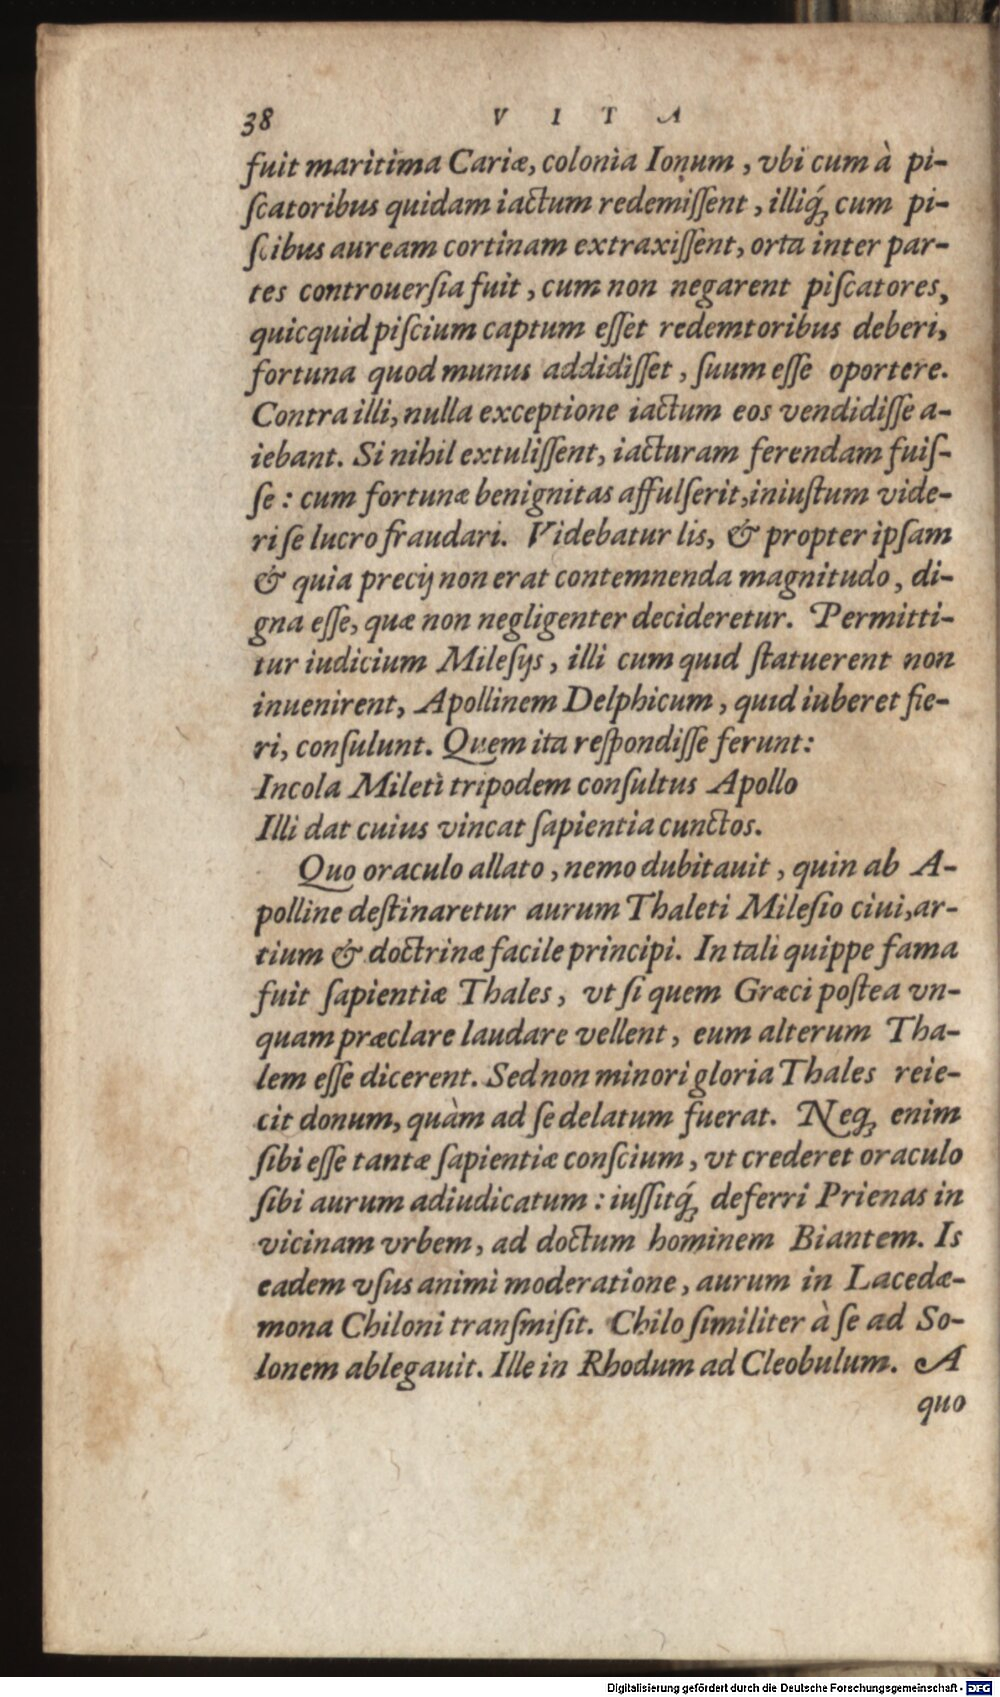 38 VITA
fuit maritima Cariæ, colonia Ionum, vbi cum à pi-
ſcatoribus quidam iactum redemiſſent, illiq́; cum pi-
ſcibus auream cortinam extraxiſſent, orta inter par-
tes controuerſia fuit, cum non negarent piſcatores,
quicquid piſcium captum eſſet redemtoribus deberi,
fortuna quod munus addidiſſet, ſuum eſſe oportere.
Contra illi, nulla exceptione iactum eos vendidiſſe a-
iebant. Si nihil extuliſſent, iacturam ferendam fuiſ-
ſe: cum fortunæ benignitas affulſerit, iniuſtum vide-
ri ſe lucro fraudari. Videbatur lis, & propter ipſam
& quia precij non erat contemnenda magnitudo, di-
gna eſſe, quæ non negligenter decideretur. Permitti-
tur iudicium Mileſijs, illi cum quid ſtatuerent non
inuenirent, Apollinem Delphicum, quid iuberet fie-
ri, conſulunt. Quem ita reſpondiſſe ferunt:
Incola Mileti tripodem conſultus Apollo
Illi dat cuius vincat ſapientia cunctos.
Quo oraculo allato, nemo dubitauit, quin ab A-
polline deſtinaretur aurum Thaleti Mileſio ciui, ar-
tium & doctrinæ facile principi. In tali quippe fama
fuit ſapientiæ Thales, vt ſi quem Græci poſtea vn-
quam præclare laudare vellent, eum alterum Tha-
lem eſſe dicerent. Sed non minori gloria Thales reie-
cit donum, quàm ad ſe delatum fuerat. Neq; enim
ſibi eſſe tantæ ſapientiæ conſcium, vt crederet oraculo
ſibi aurum adiudicatum: iuſſitq́; deferri Prienas in
vicinam vrbem, ad doctum hominem Biantem. Is
eadem vſus animi moderatione, aurum in Lacedæ-
mona Chiloni tranſmiſit. Chilo ſimiliter à ſe ad So-
lonem ablegauit. Ille in Rhodum ad Cleobulum. A
quo
Digitalisierung gefördert durch die Deutsche Forschungsgemeinschaft - DFG